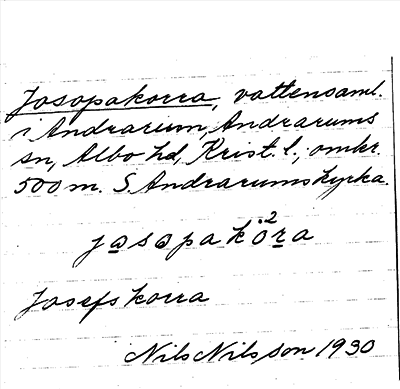 Josopakorra, vattensaml.
i Andrarum, Andrarums
sn, Albo hd, Krist. l., omkr.
500 m. S. Andrarums kyrka.
jasopakȯ²ra
Josefskorra
Nils Nilsson 1930